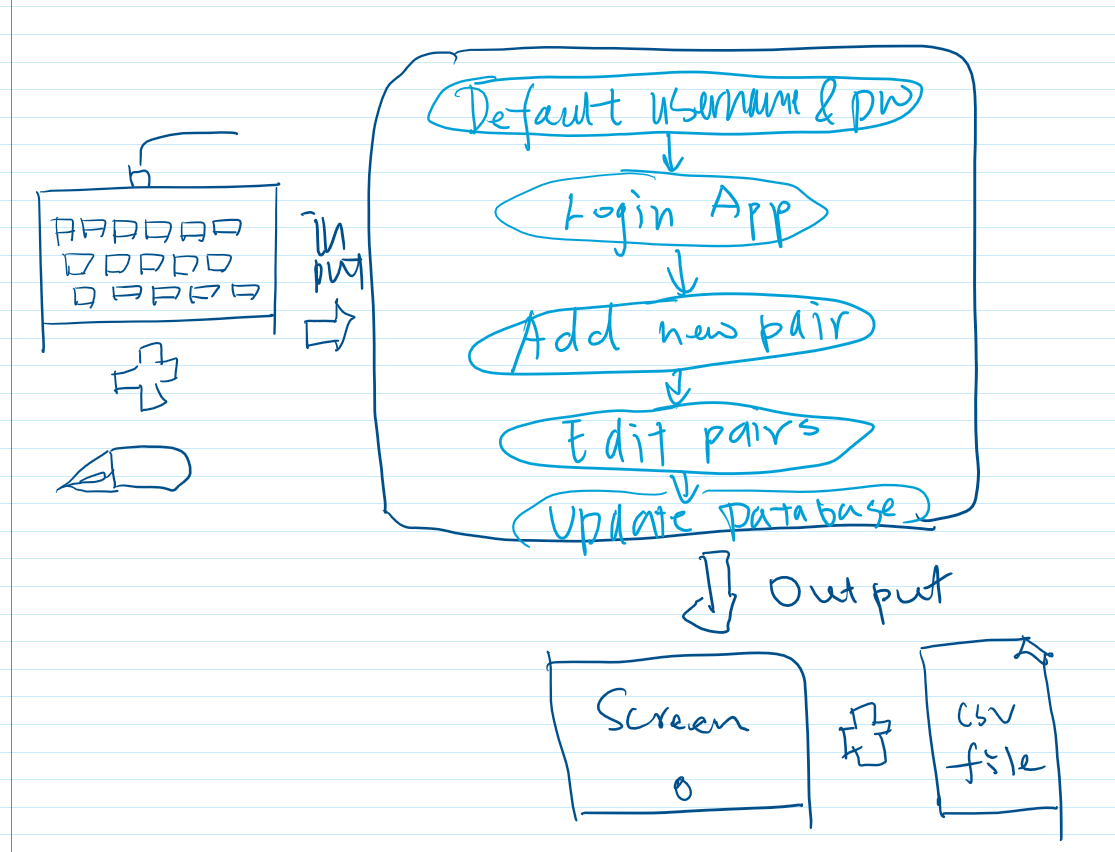 Default username & pw
Login App
in
put
Add new pair
Edit pairs
Update Database
Output
Screen
CSV
file